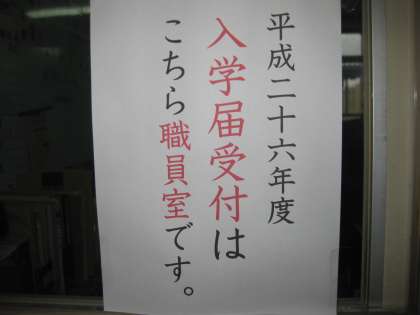 平成二十六年度
入学届受付は
こちら職員室です。